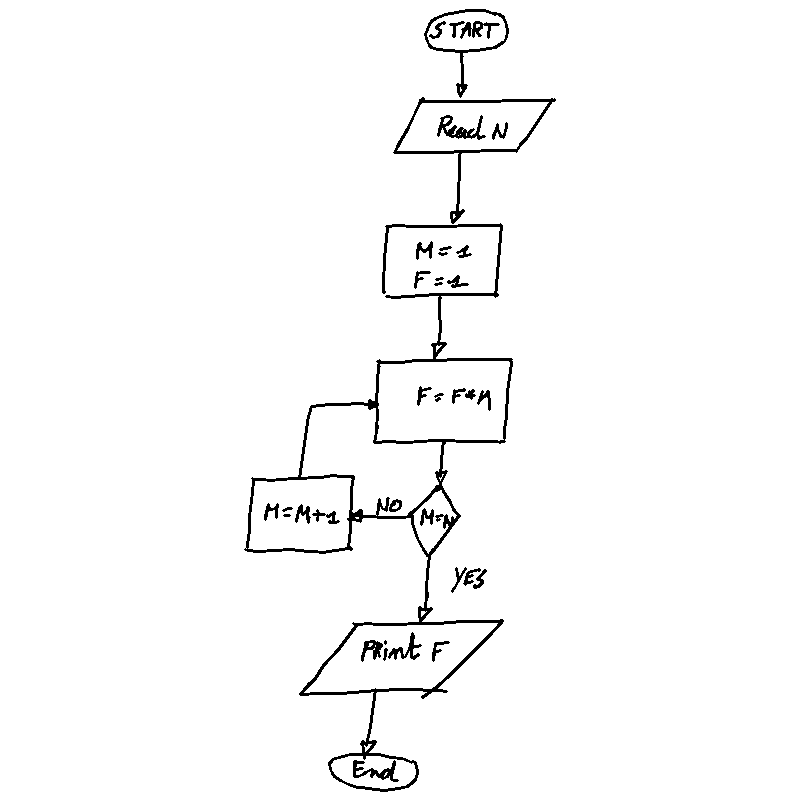 START
Read N
M = 1
F = 1
F = F*M
M = M+1
NO
M=N
YES
PRint F
End